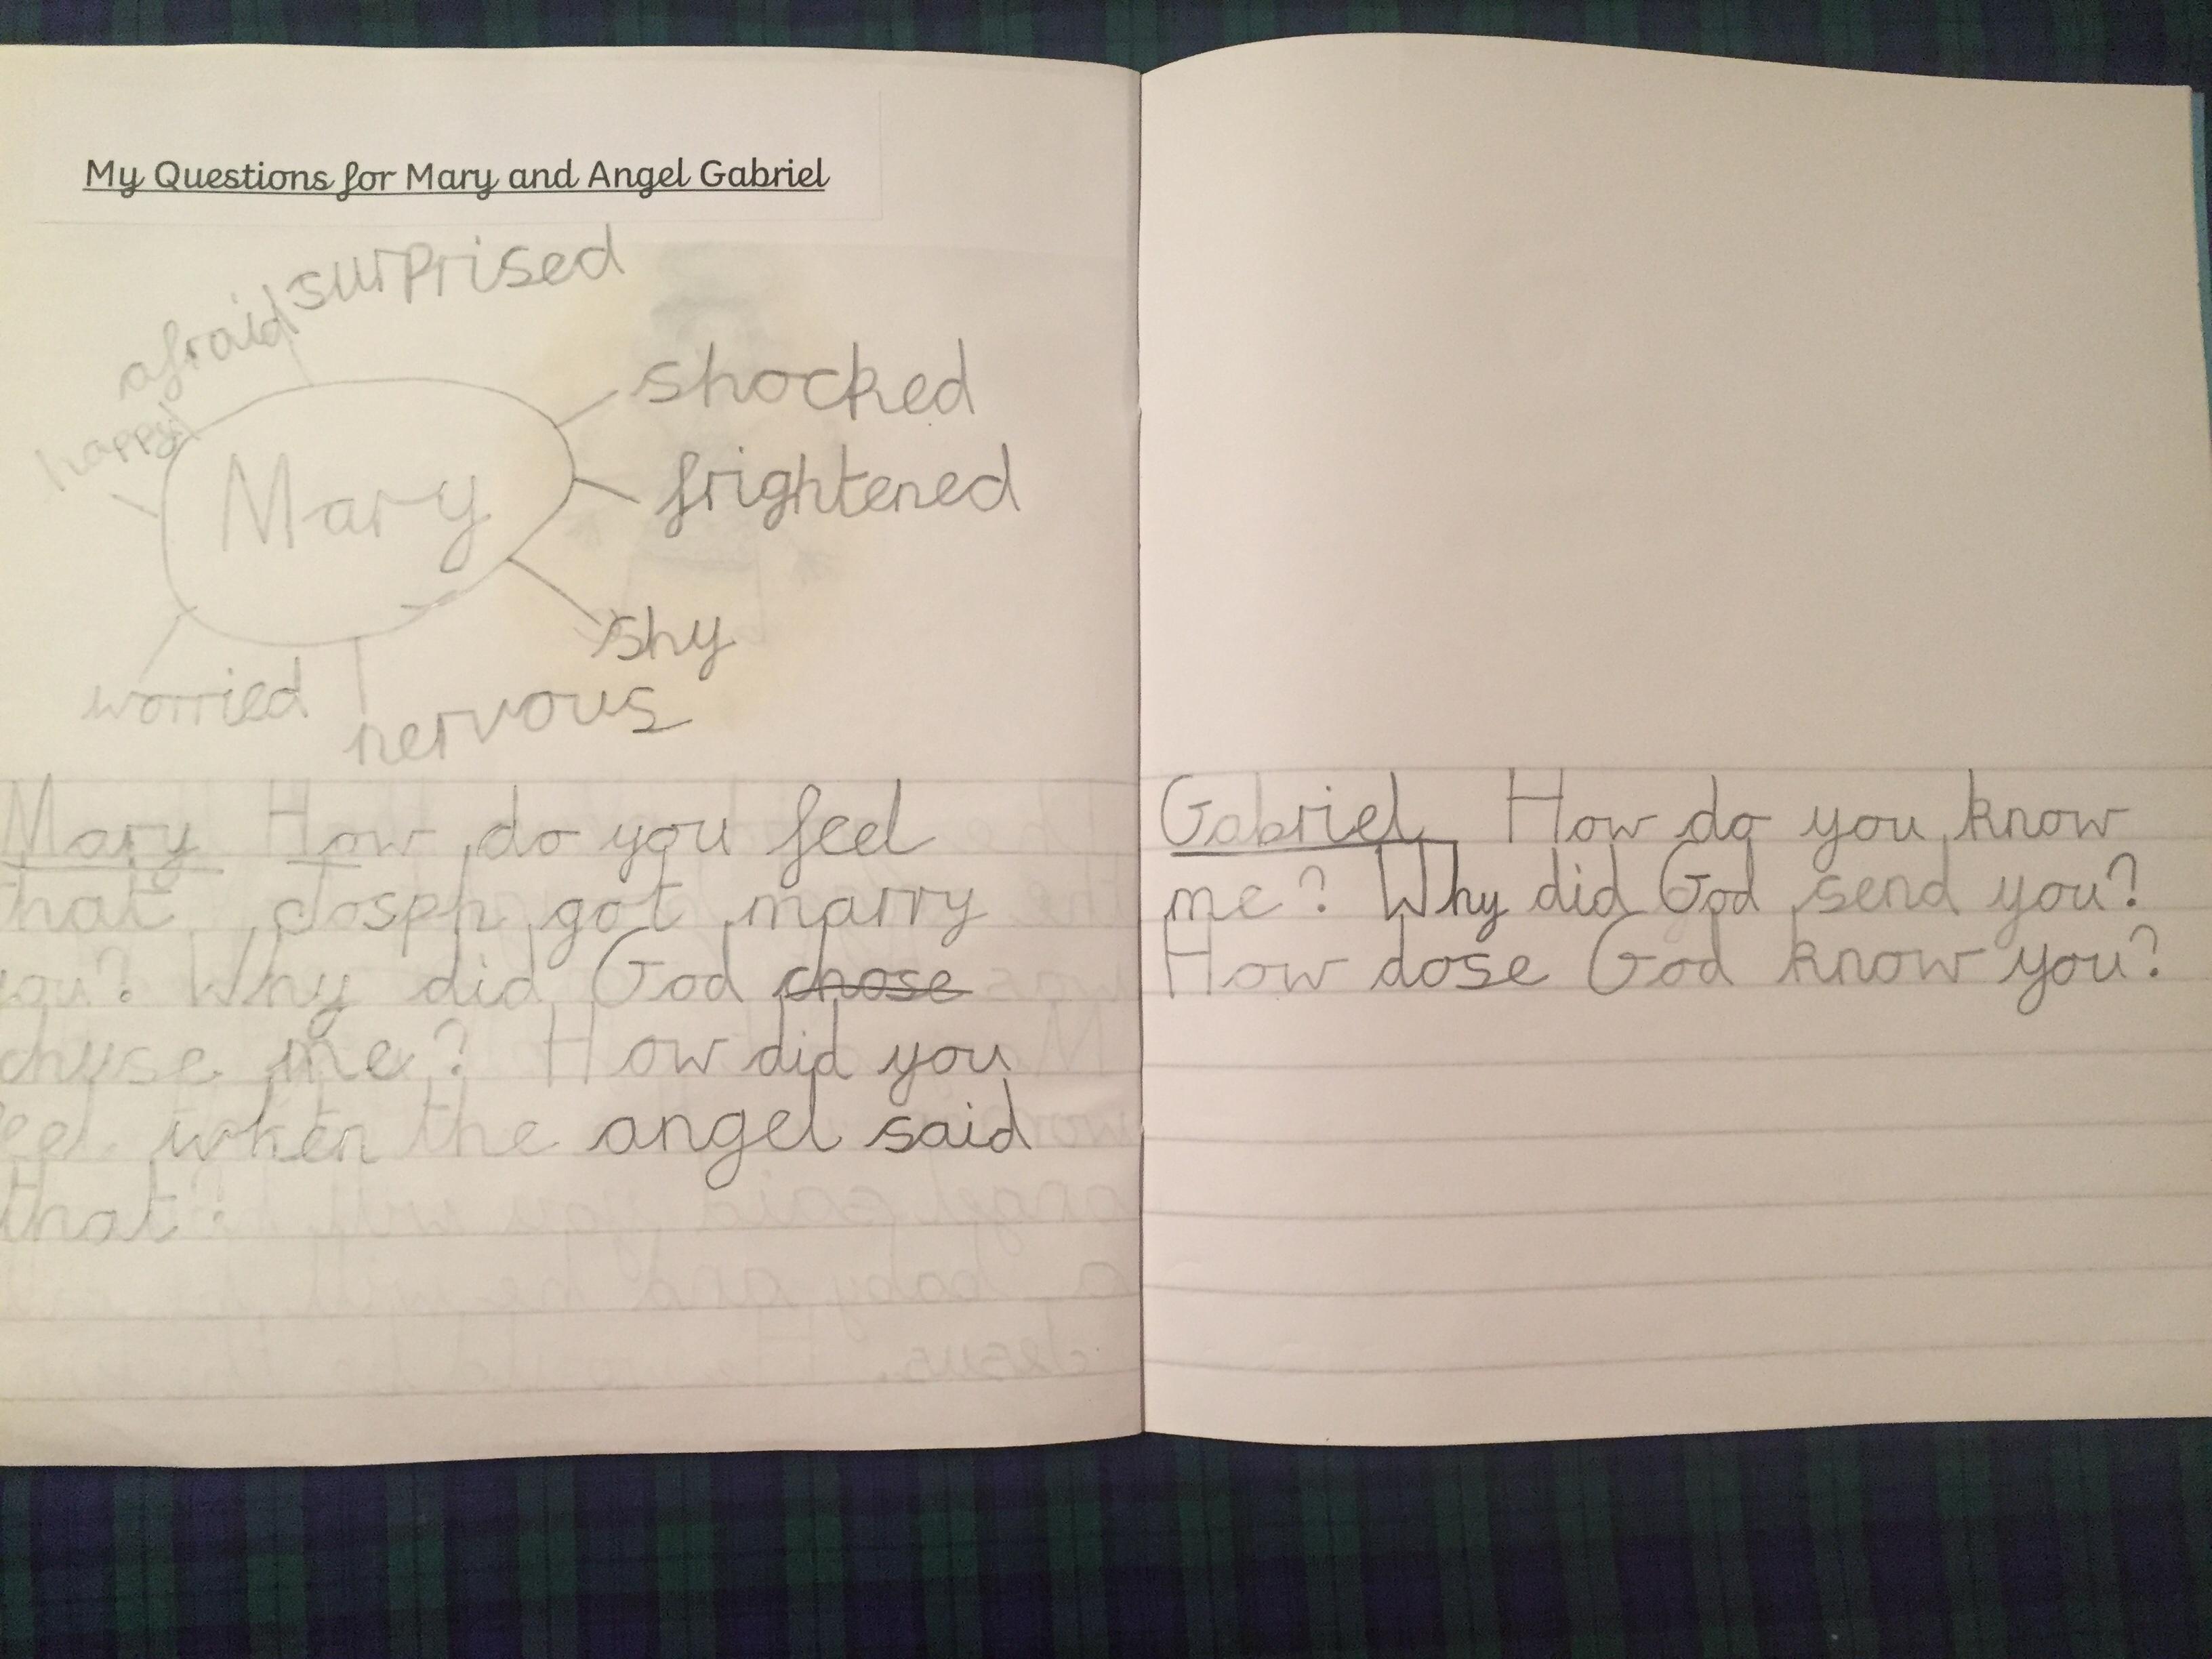 My Questions for Mary and Angel Gabriel
surprised
afraid
happy
shocked
frightened
Mary
shy
worried
nervous
Mary How do you feel
that Josph got marry
you? Why did God chose
chuse me? How did you
feel when the angel said
that?
Gabriel How do you know
me? Why did God send you?
How dose God know you?